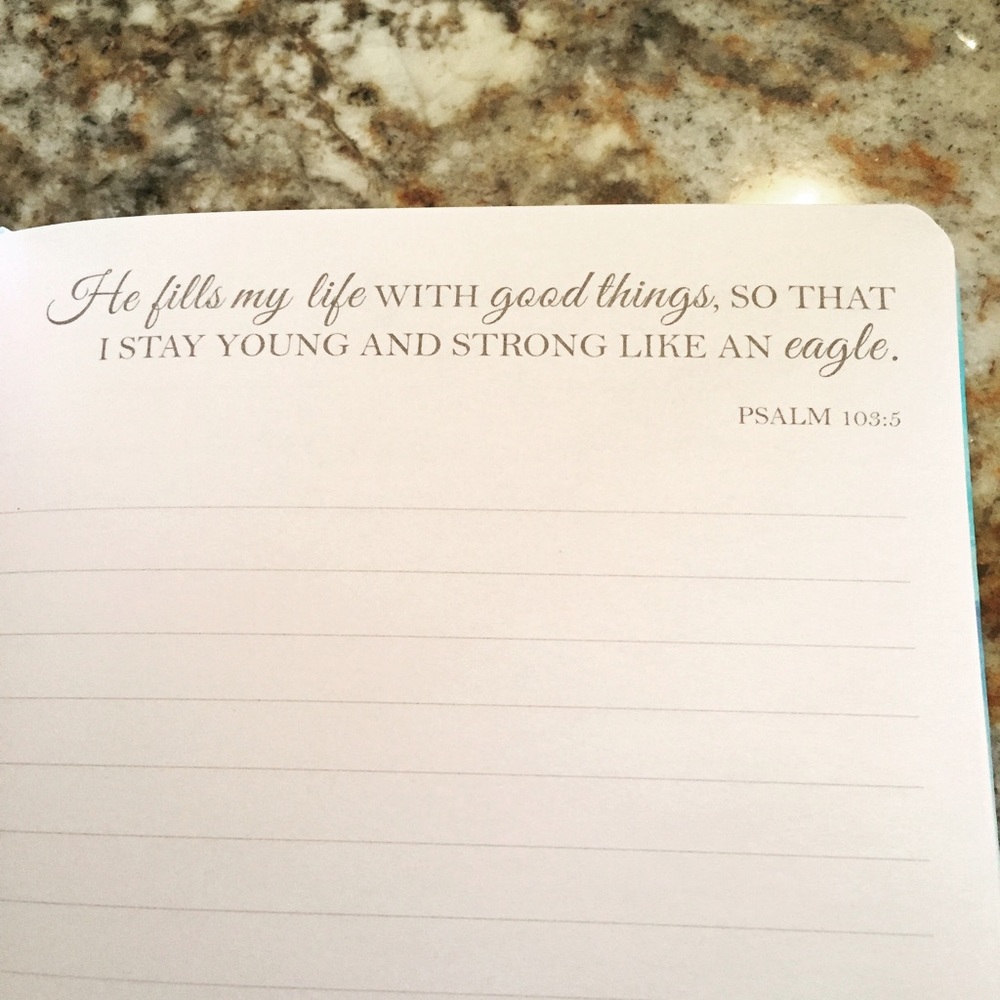 He fills my life WITH good things, SO THAT
I STAY YOUNG AND STRONG LIKE AN eagle.
PSALM 103:5